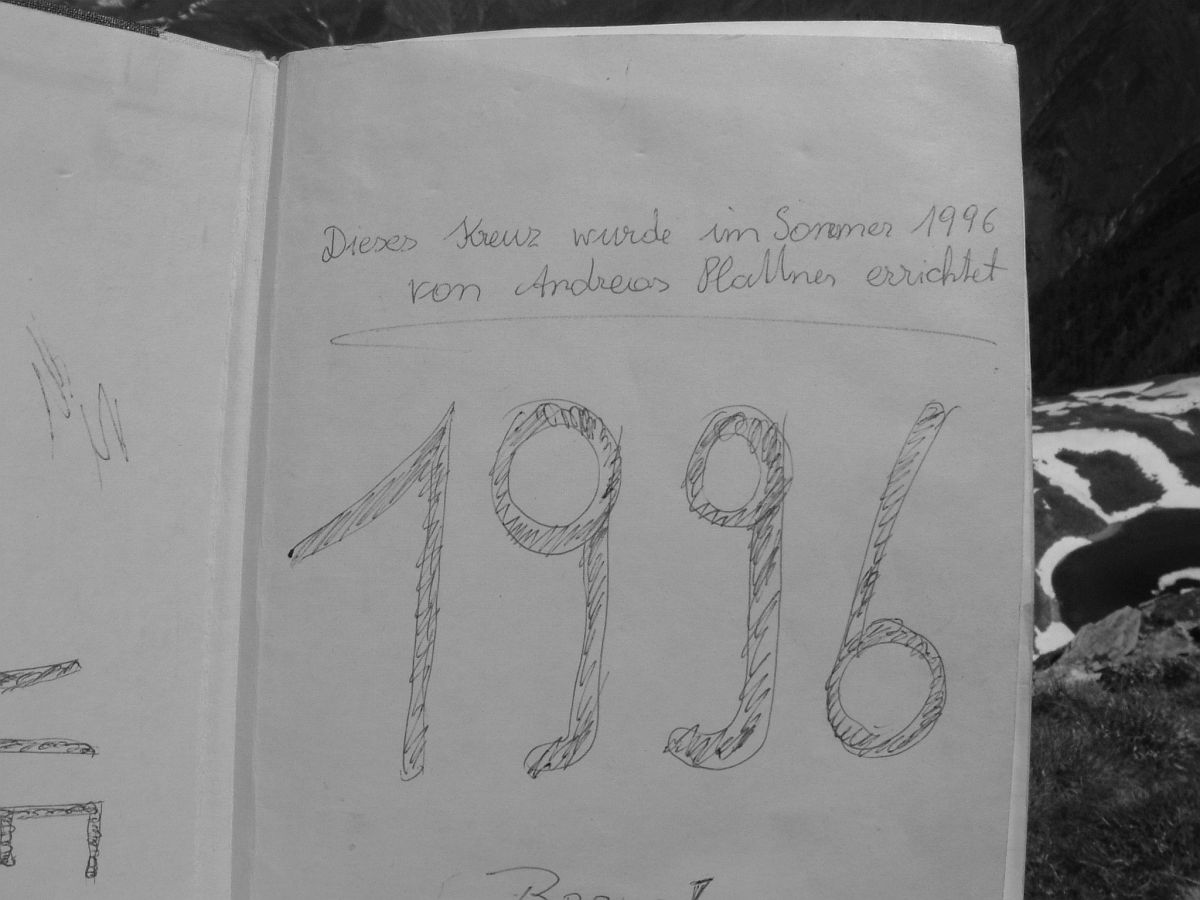 Dieses Kreuz wurde im Sommer 1996
von Andreas Plattner errichtet
1996